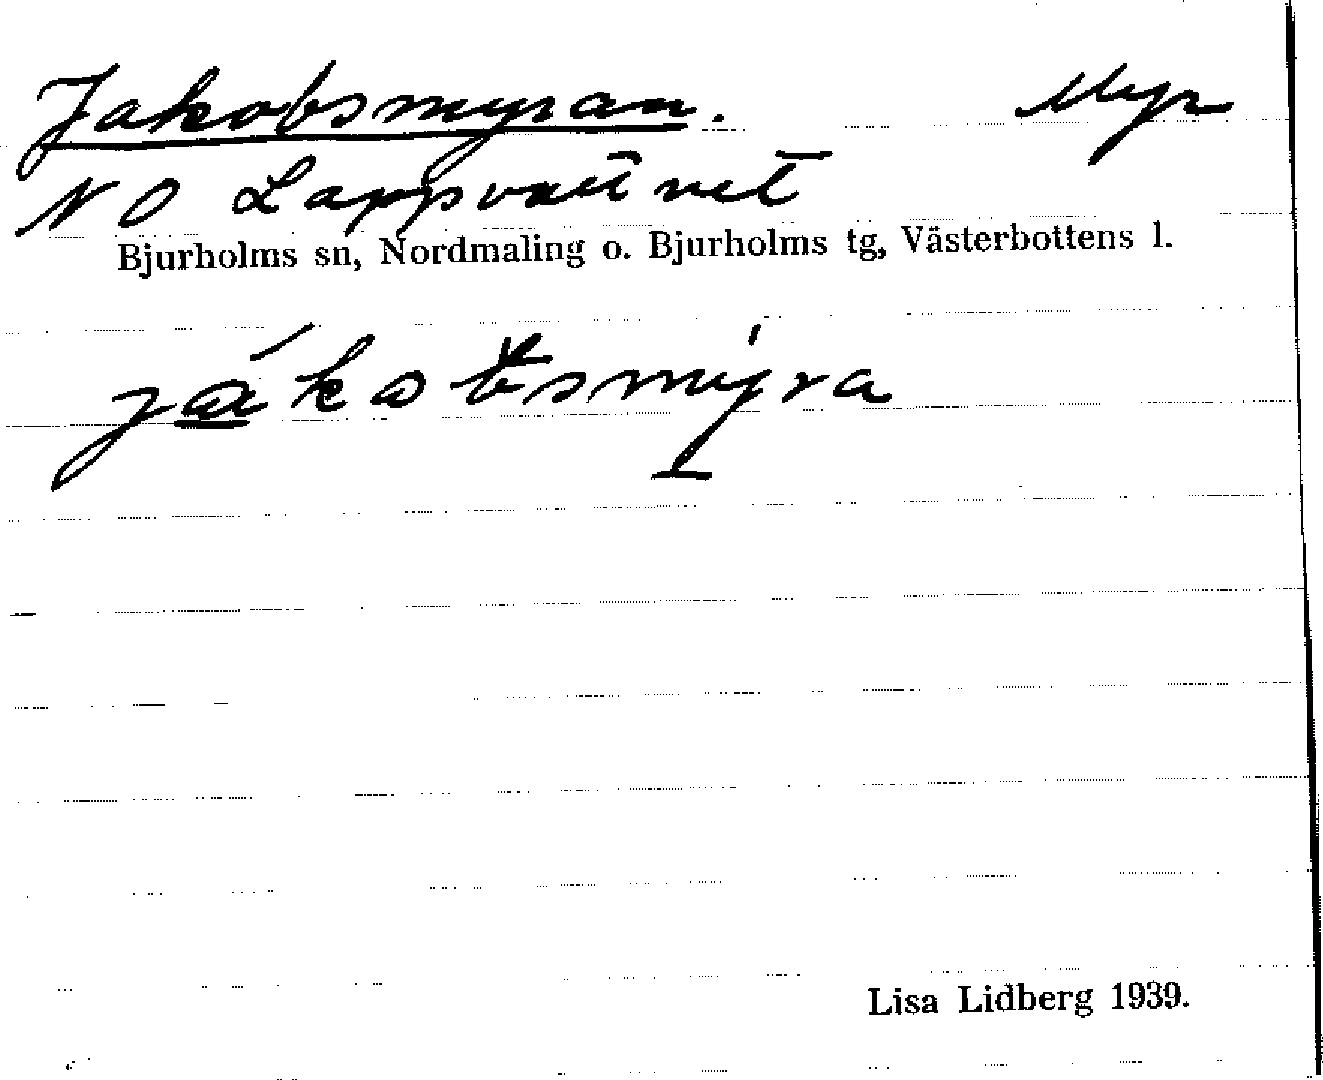 Jakobsmyran. Myr
NO Lappvattnet
Bjurholms sn, Nordmaling o. Bjurholms tg, Västerbottens l.
Lisa Lidberg 1939.